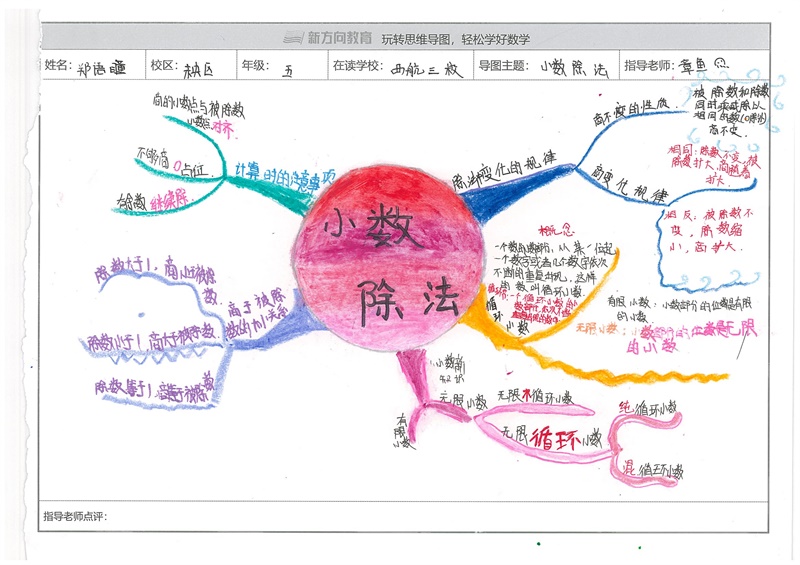 新方向教育 玩转思维导图，轻松学好数学
姓名：
校区：
年级：五
在读学校：西航三校
导图主题：小数除法
指导老师：章鱼
小数
除法
计算时的注意事项
商的小数点与被除数
小数点对齐
不够商0占位
有余数继续除
除法变化的规律
商不变的性质
被除数和除数
同时乘或除以
相同的数(0除外)
商不变
商变化规律
相同：除数不变，被
除数扩大，商随着
扩大。
相反：被除数不
变，除数缩
小，商扩大。
概念
一个数的小数部分，从某一位起
一个数字或者几个数字依次
不断的重复出现，这样
的数叫循环小数。
循环小数
有限小数：小数部分的位数是有限
的小数。
无限小数：小数部分的位数是无限
的小数
商于被除
数的大小关系
除数大于1，商小于被除
数
除数小于1，商大于被除数
除数等于1，商等于被除数
小数的
知识
有限小数
无限小数
无限不循环小数
无限循环小数
纯循环小数
混循环小数
指导老师点评：